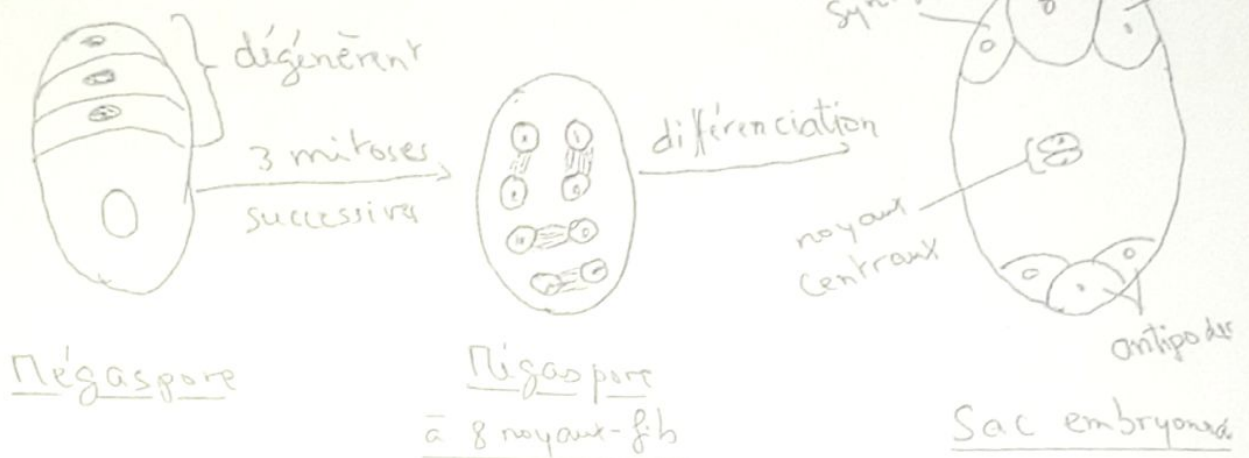 dégénèrent
3 mitoses
successives
différenciation
noyaux
centraux
antipodes
Mégaspore
Mégaspore
à 8 noyaux-fils
Sac embryonna